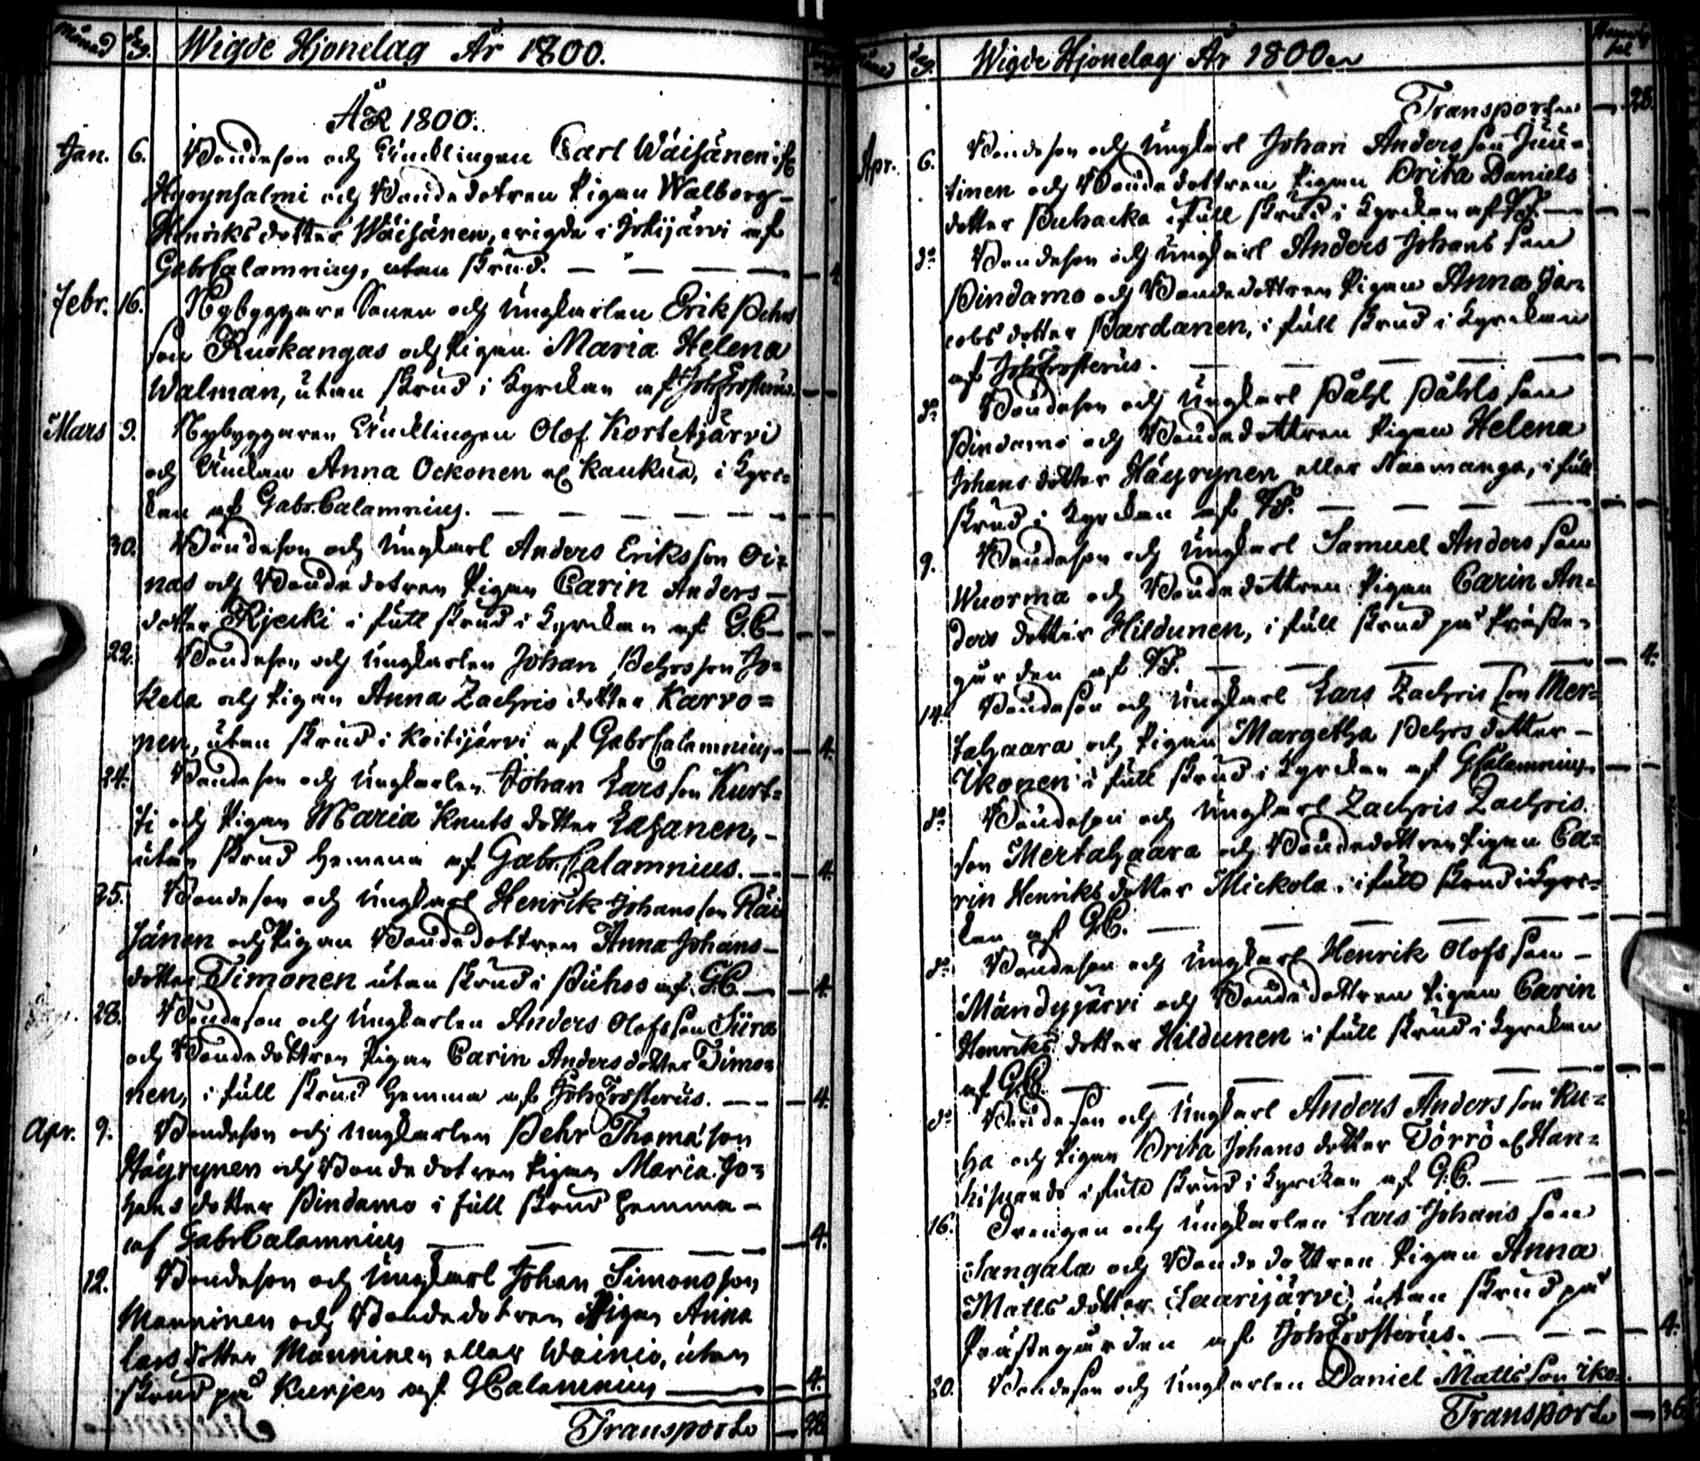 Månad dag. Wigde Hjonelag År 1800.
ÅR 1800.
Jan. 6. Bondeson och Encklingen Carl Wäisänen if:
Hyrynsalmi och Bondedotren Pigan Walborg
Henriksdotter Wäisänen, vigde i Jokijärvi af
Gabr Calamnius, utan skrud. 4.
Febr. 16. Nybyggare Sonen och Ungkarlen Erik Pehrs
son Ruokangas och Pigan Maria Helena
Walman, utan skrud i Kyrckan af Joh Frosterus.
Mars 9. Nybyggaren Encklingen Olof Kortetjärvi
och Enckan Anna Ockonen el. Kaukua, i Kyrc=
kan af Gabr. Calamnius.
30. Bondeson och Ungkarl Anders Eriksson Oi=
nas och Bondedotren Pigan Carin Anders
dotter Kjecki i full skrud i Kyrckan af G.C.
22. Bondeson och Ungkarlen Johan Pehrsson Jo=
kela och Pigan Anna Zachrisdotter Karvo=
nen, utan skrud i Koitijärvi af Gabr Calamnius 4.
24. Bondeson och Ungkarlen Johan Larsson Kurt=
ti och Pigan Maria Knutsdotter Lasanen,
utan skrud hemma af Gabr. Calamnius. 4.
25. Bondeson och Ungkarl Henrik Johansson Räi
sänen och Pigan Bondedottren Anna Johans
dotter Timonen utan skrud i Puhos af G.C. 4.
28. Bondeson och Ungkarlen Anders Olofsson Siira
och Bondedottren Pigan Carin Andersdotter Timo=
nen, i full skrud hemma af Joh Frosterus. 4.
Apr. 9. Bondeson och Ungkarlen Pehr Thomasson
Häyrynen och Bondedotren Pigan Maria Jo=
hansdotter Pindamo i full skrud hemma
af Gabr Calamnius 4.
12. Bondeson och Ungkarl Johan Simonsson
Manninen och Bondedotren Pigan Anna
Larsdotter Manninen eller Wainio, utan
skrud på Kurjen af G Calamnius 4.
Transport 28.
dag. Wigde Hjonelag År 1800
Transport 28.
Apr. 6. Bondeson och Ungkarl Johan Andersson Juu=
tinen och Bondedottren Pigan Brita Daniels
dotter Puhacka i full skrud i Kyrckan af JF.
do Bondeson och Ungkarl Anders Johansson
Pindamo och Bondedottren Pigan Anna Ja=
cobsdotter Pardanen, i full skrud i Kyrckan
af Joh Frosterus.
do Bondeson och Ungkarl Påhl Påhlsson
Pindamo och Bondedottren Pigan Helena
Johansdotter Häyrynen eller Naamanga, i full
skrud i Kyrckan af JF.
9. Bondeson och Ungkarl Samuel Andersson
Wuorma och Bondedottren Pigan Carin An=
dersdotter Hildunen, i full skrud på Präste=
gården af JF. 4.
14. Bondeson och Ungkarl Lars Zachrisson Mer=
tahaara och Pigan Margetha Pehrsdotter
Ikonen i full skrud i Kyrckan af G Calamnius
do Bondeson och Ungkarl Zachris Zachris
son Mertahaara och Bondedottren Pigan Ca=
rin Henriksdotter Mickola i full skrud i Kyrc=
kan af G.C.
do Bondeson och Ungkarl Henrik Olofsson
Mändyjärvi och Bondedottren Pigan Carin
Henriksdotter Hildunen i full skrud i Kyrckan
af G.C.
do Bondeson och Ungkarl Anders Andersson Ku=
ha och Pigan Brita Johansdotter Törrö el. Han=
hisuando i full skrud i Kyrckan af G.C.
16. Drengen och Ungkarlen Lars Johansson
Sangala och Bondedottren Pigan Anna
Mattsdotter Saarijärvi, utan skrud på
Prästegården af Joh Frosterus. 4.
20. Bondeson och Ungkarlen Daniel Mattsson Iko=
Transport 36